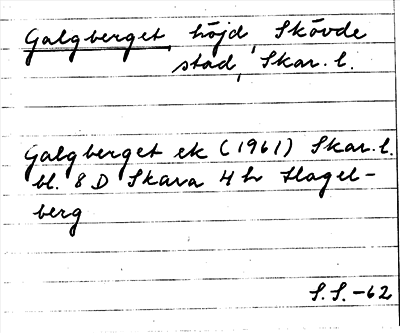 Galgberget, höjd, Skövde
stad, Skar. l.
Galgberget ek (1961) Skar. l.
bl. 8 D Skara 4 h Hagel-
berg
S.S.-62